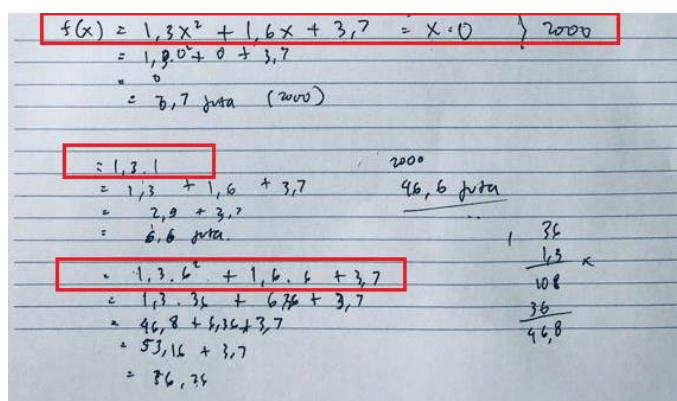 f(x) = 1,3x² + 1,6x + 3,7 = x=0 } 2000
= 1,3.0² + 0 + 3,7
= 0
= 3,7 juta (2000)
= 1,3.1
= 1,3 + 1,6 + 3,7
= 2,9 + 3,7
= 6,6 juta.
2000
46,6 juta
= 1,3.6² + 1,6.6 + 3,7
= 1,3.36 + 6,36 + 3,7
= 46,8 + 6,36 + 3,7
= 53,16 + 3,7
= 56,26
36
1,3 x
108
36
46,8